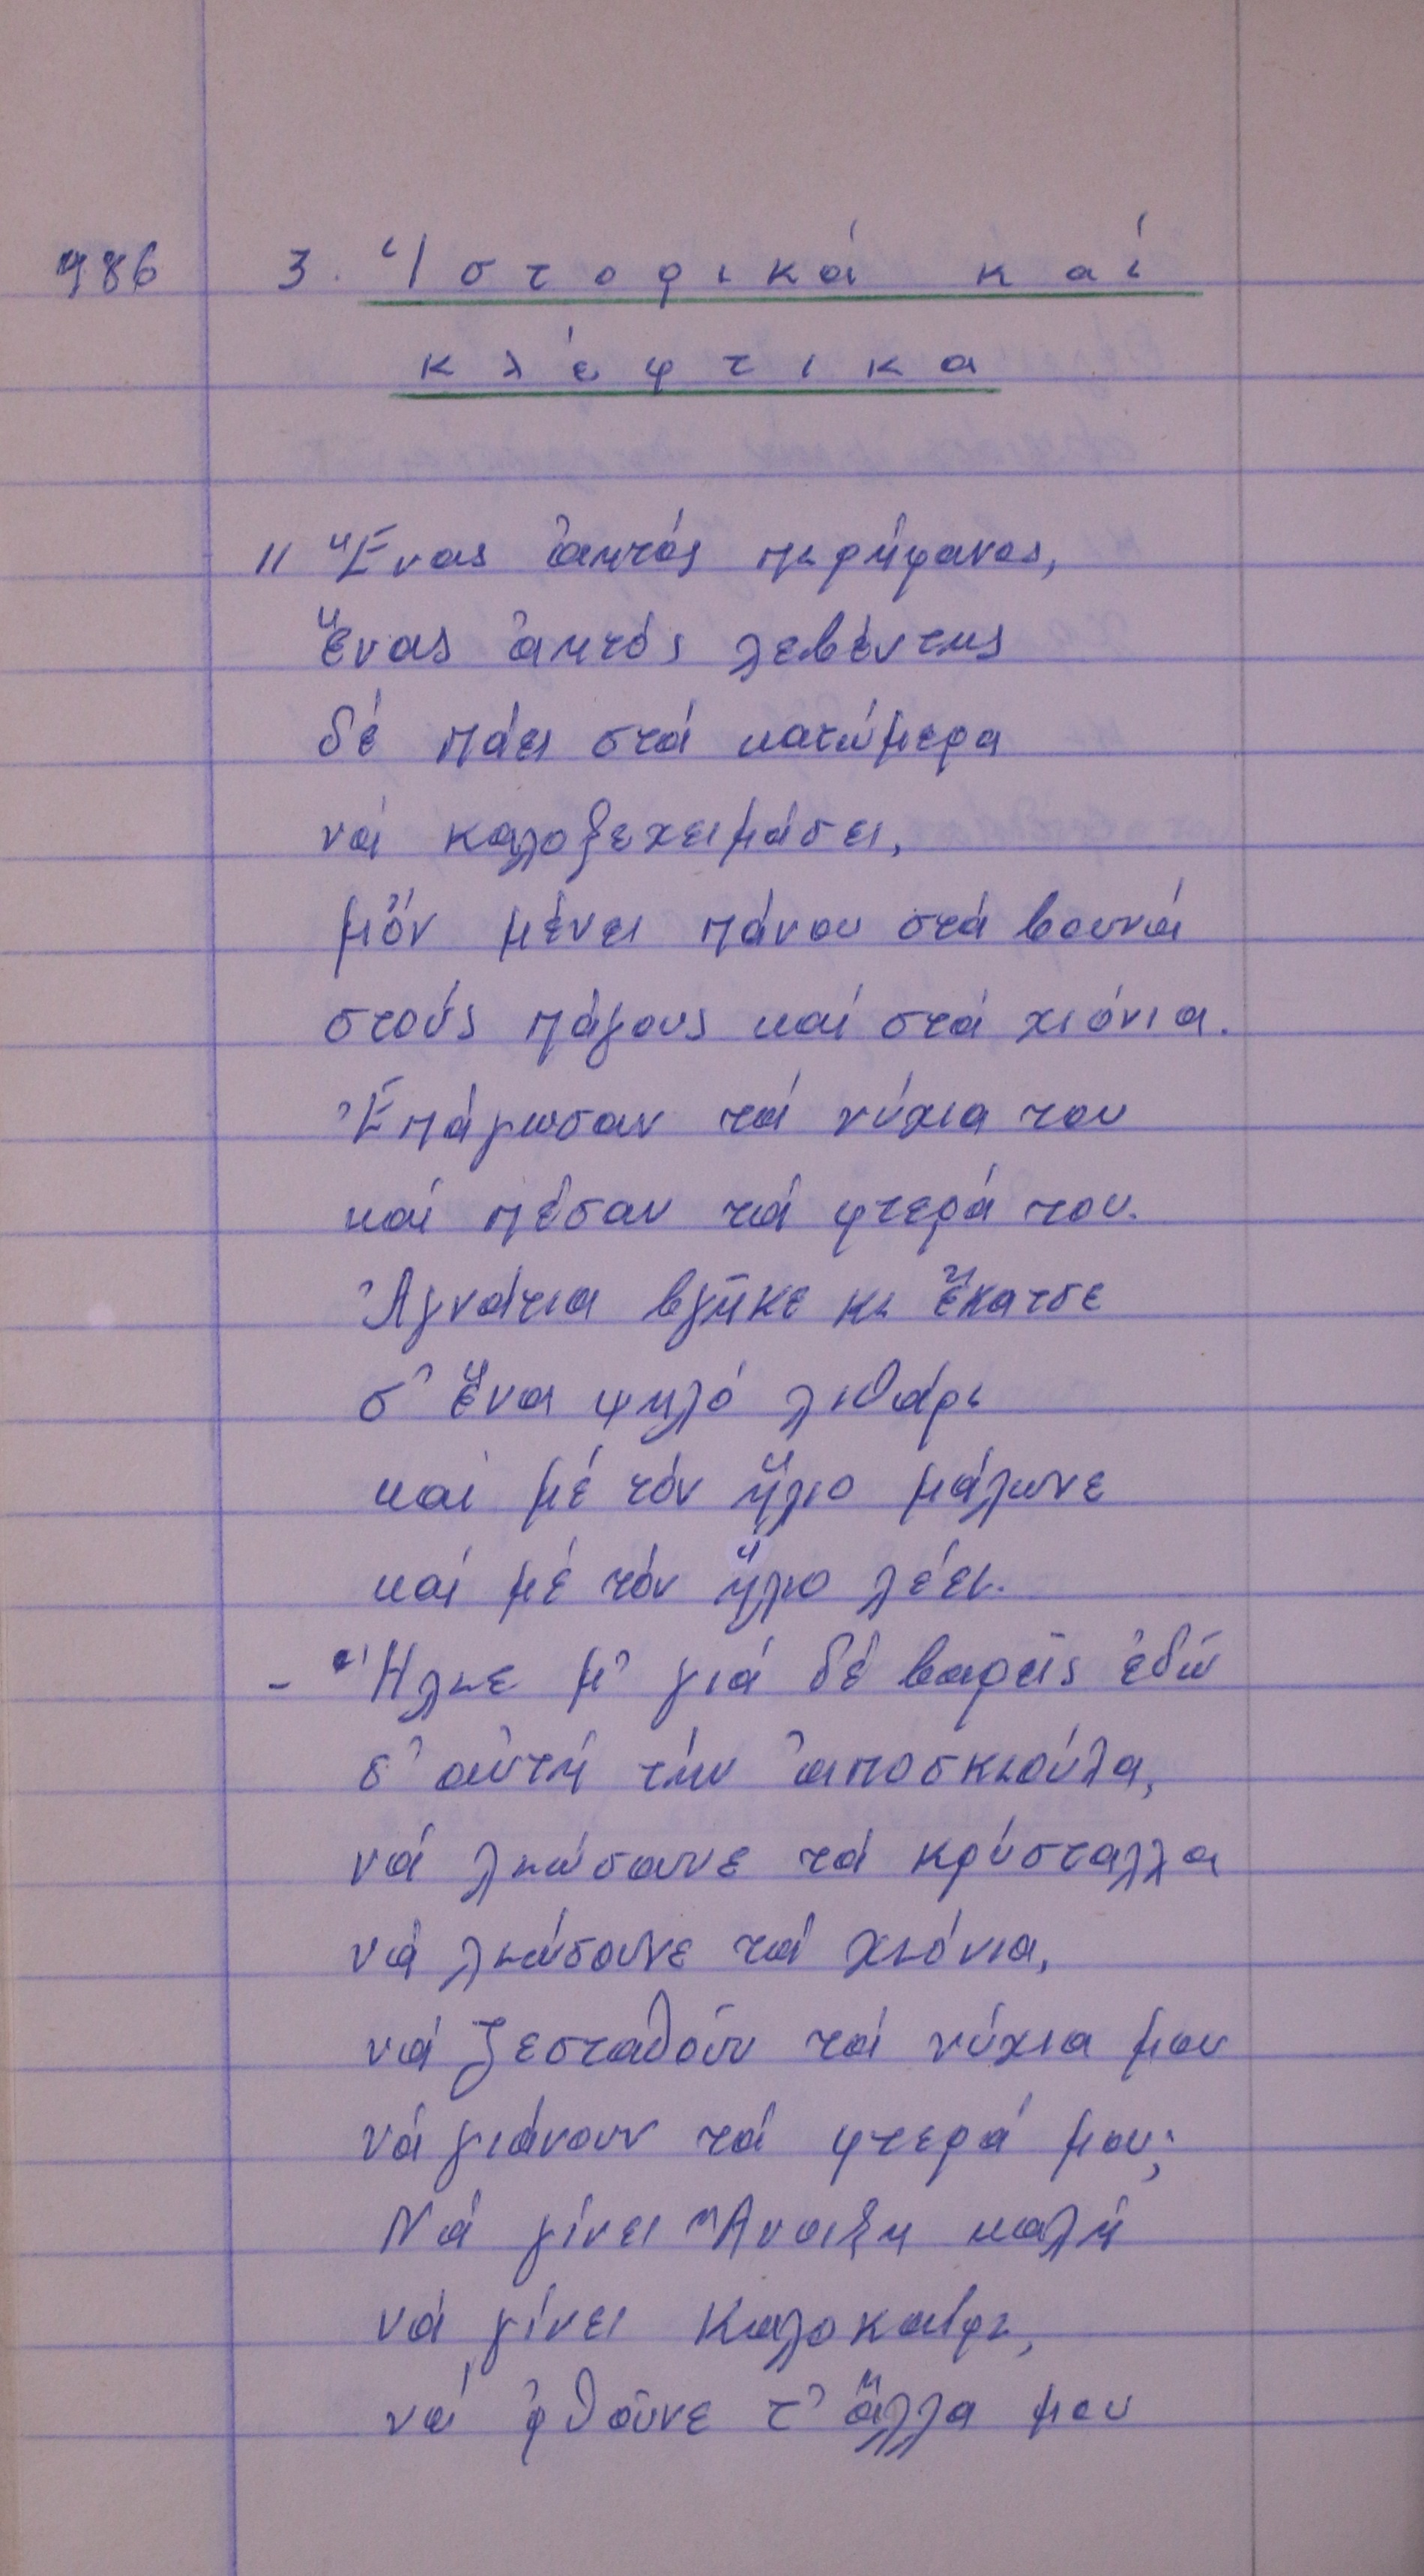 486 3. Ἱστορικά καί
κλέφτικα
" Ἕνας ἀητός περήφανος,
ἕνας ἀητός λεβέντης
δέ πάει στά κατώμερα
νά καλοξεχειμάσει,
μόν μένει πάνου στά βουνά
στούς πάγους καί στά χιόνια.
Ἐπάγωσαν τά νύχια του
καί πέσαν τά φτερά του.
Ἀγνάτια βγῆκε κι ἔκατσε
σ' ἕνα ψηλό λιθάρι
καί μέ τόν ἥλιο μάλωνε
καί μέ τόν ἥλιο λέει.
- Ἥλιε μ' γιά δέ βαρεῖς ἐδῶ
σ' αὐτή τήν ἀποσκιούλα,
νά λιώσουνε τά κρύσταλλα
νά λιώσουνε τά χιόνια,
νά ζεσταθοῦν τά νύχια μου
νά γιάνουν τά φτερά μου;
Νά γίνει Ἄνοιξη καλή
νά γίνει Καλοκαίρι,
νά ρθοῦνε τ' ἄλλα μου